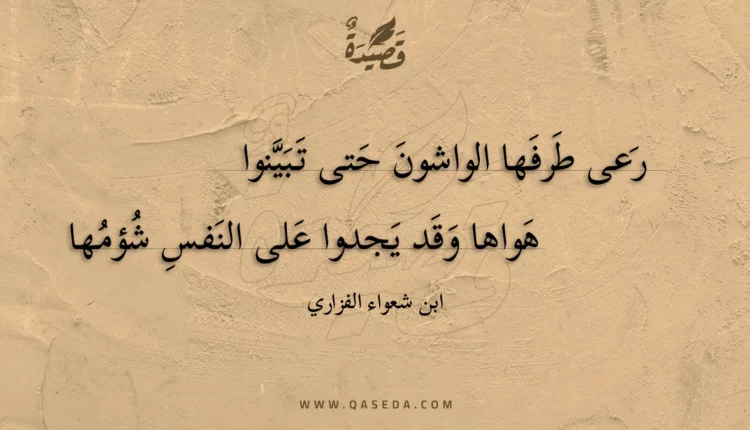 قَصِيدَةٌ
رَعى طَرفَها الواشونَ حَتى تَبَيَّنوا
هَواها وَقَد يَجدوا عَلى النَفسِ شُؤمُها
ابن شعواء الفزاري
WWW.QASEDA.COM